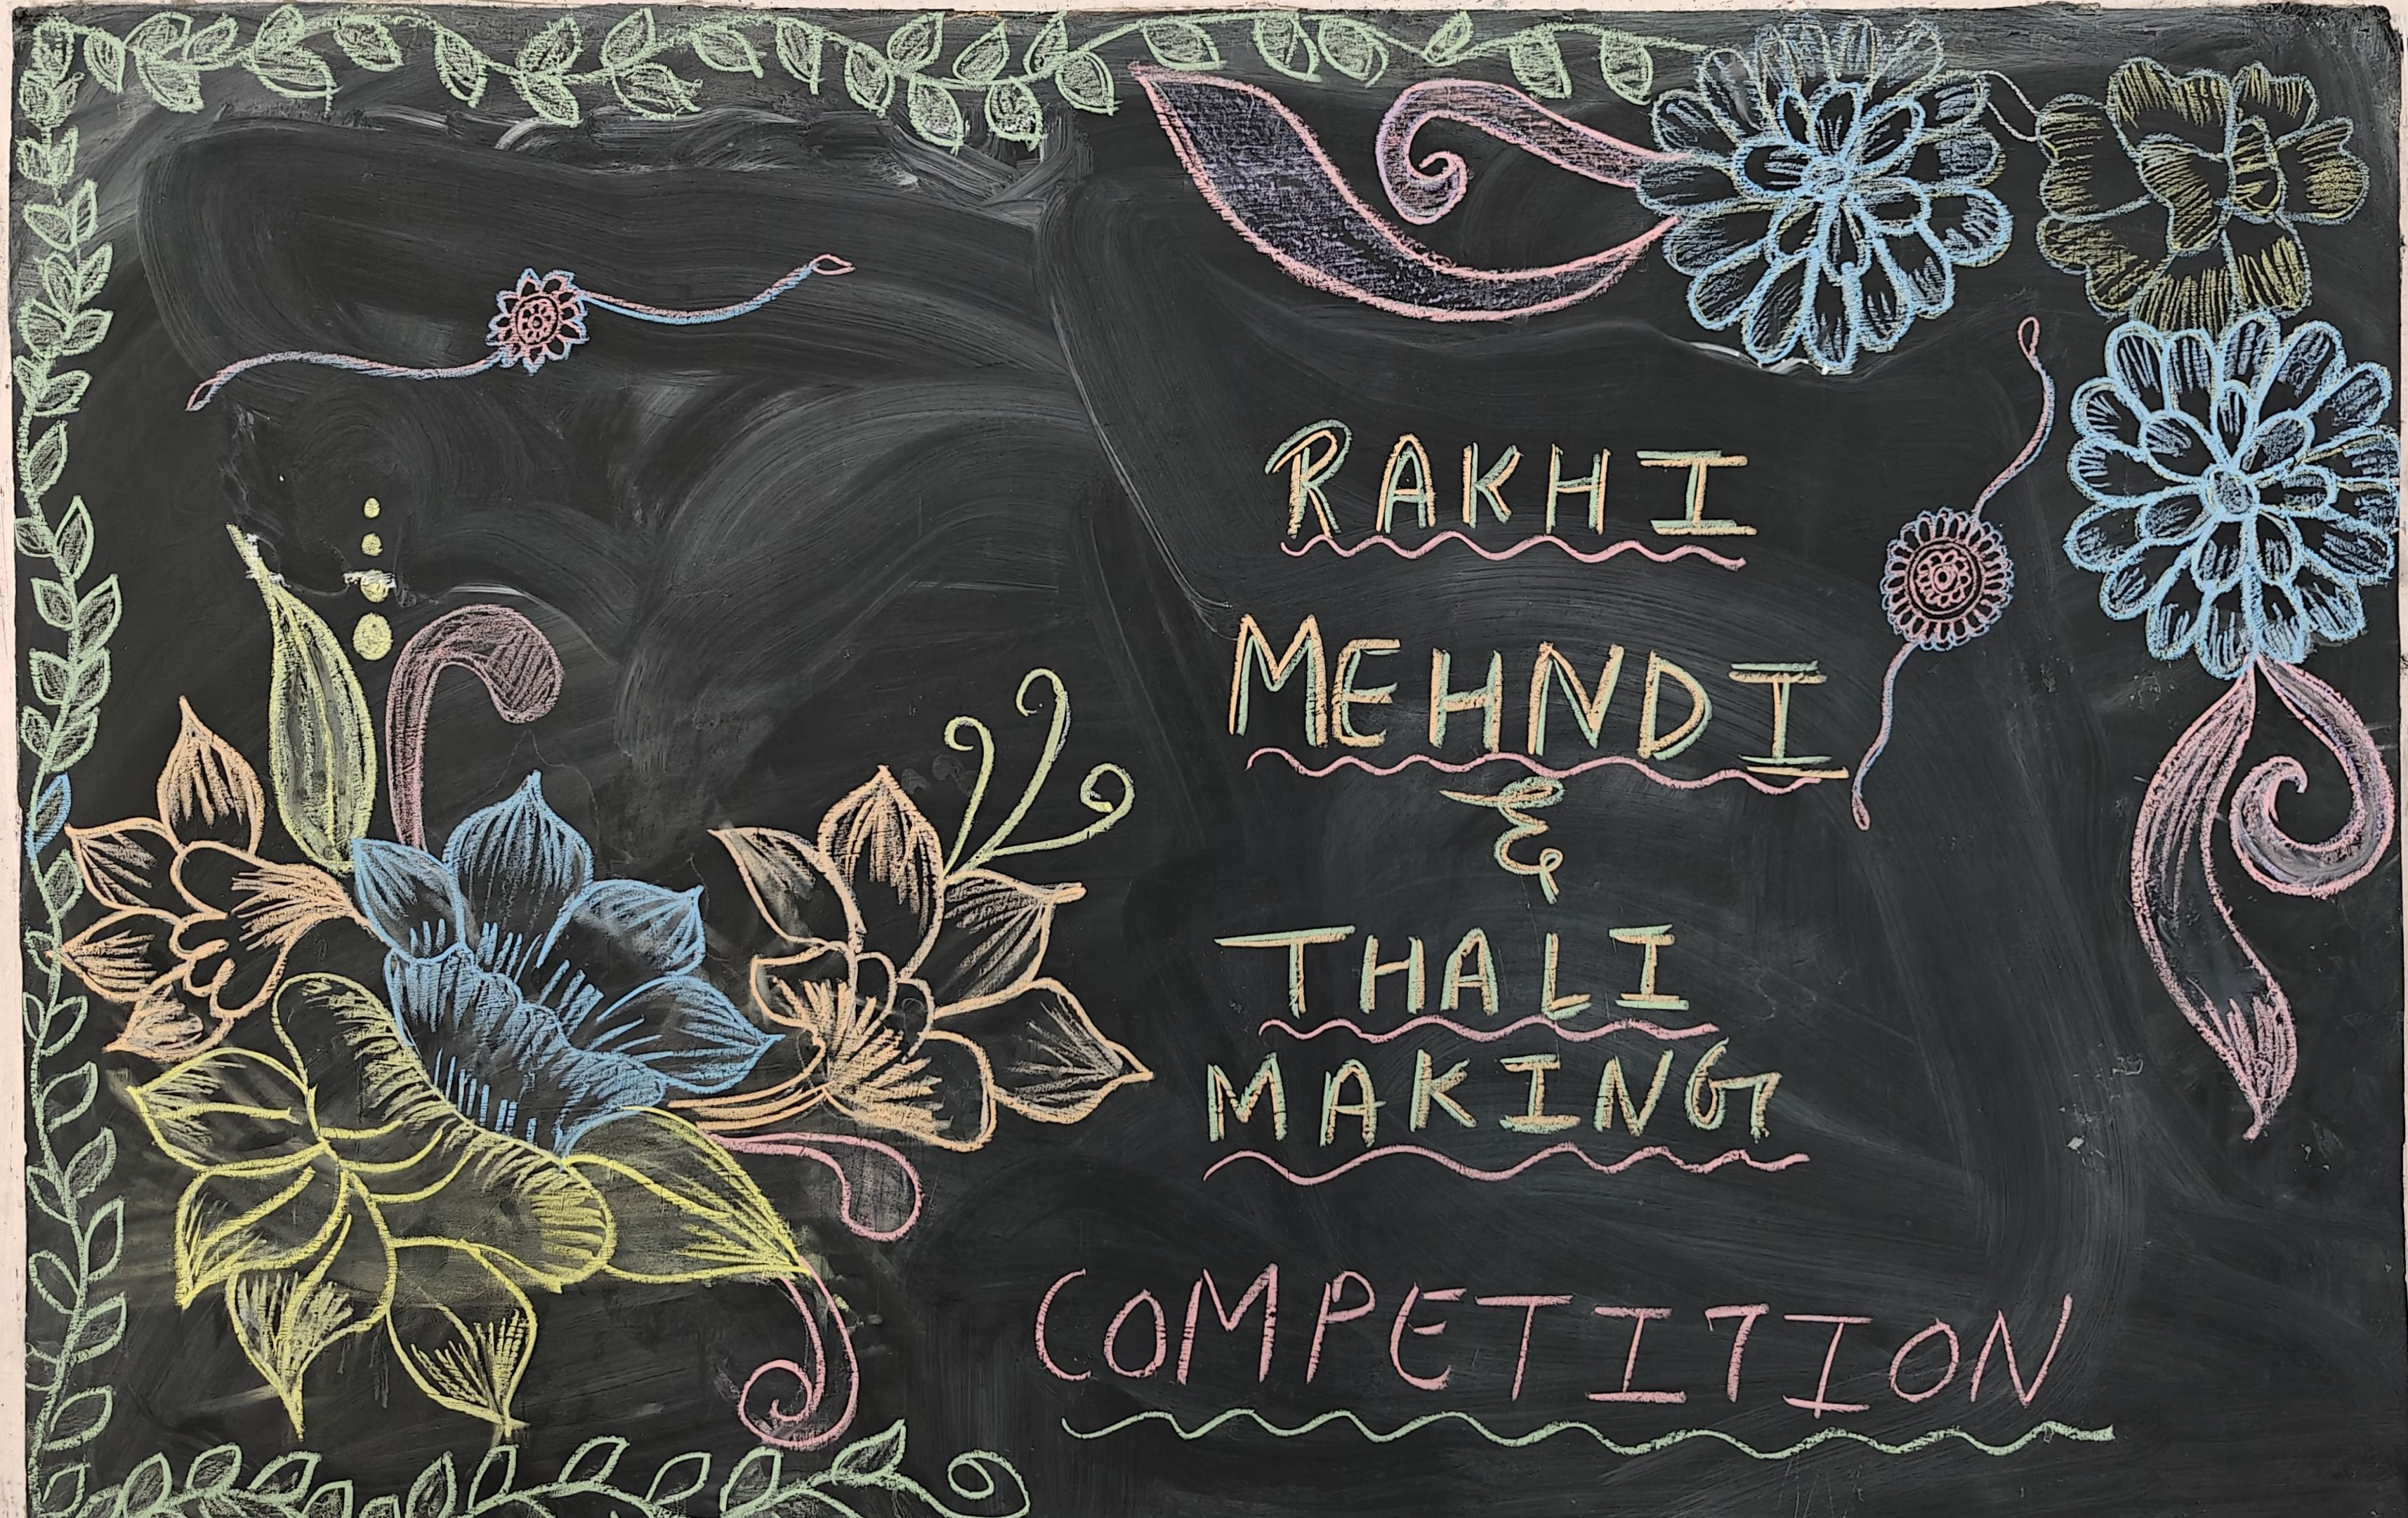 RAKHI
MEHNDI
&
THALI
MAKING
COMPETITION